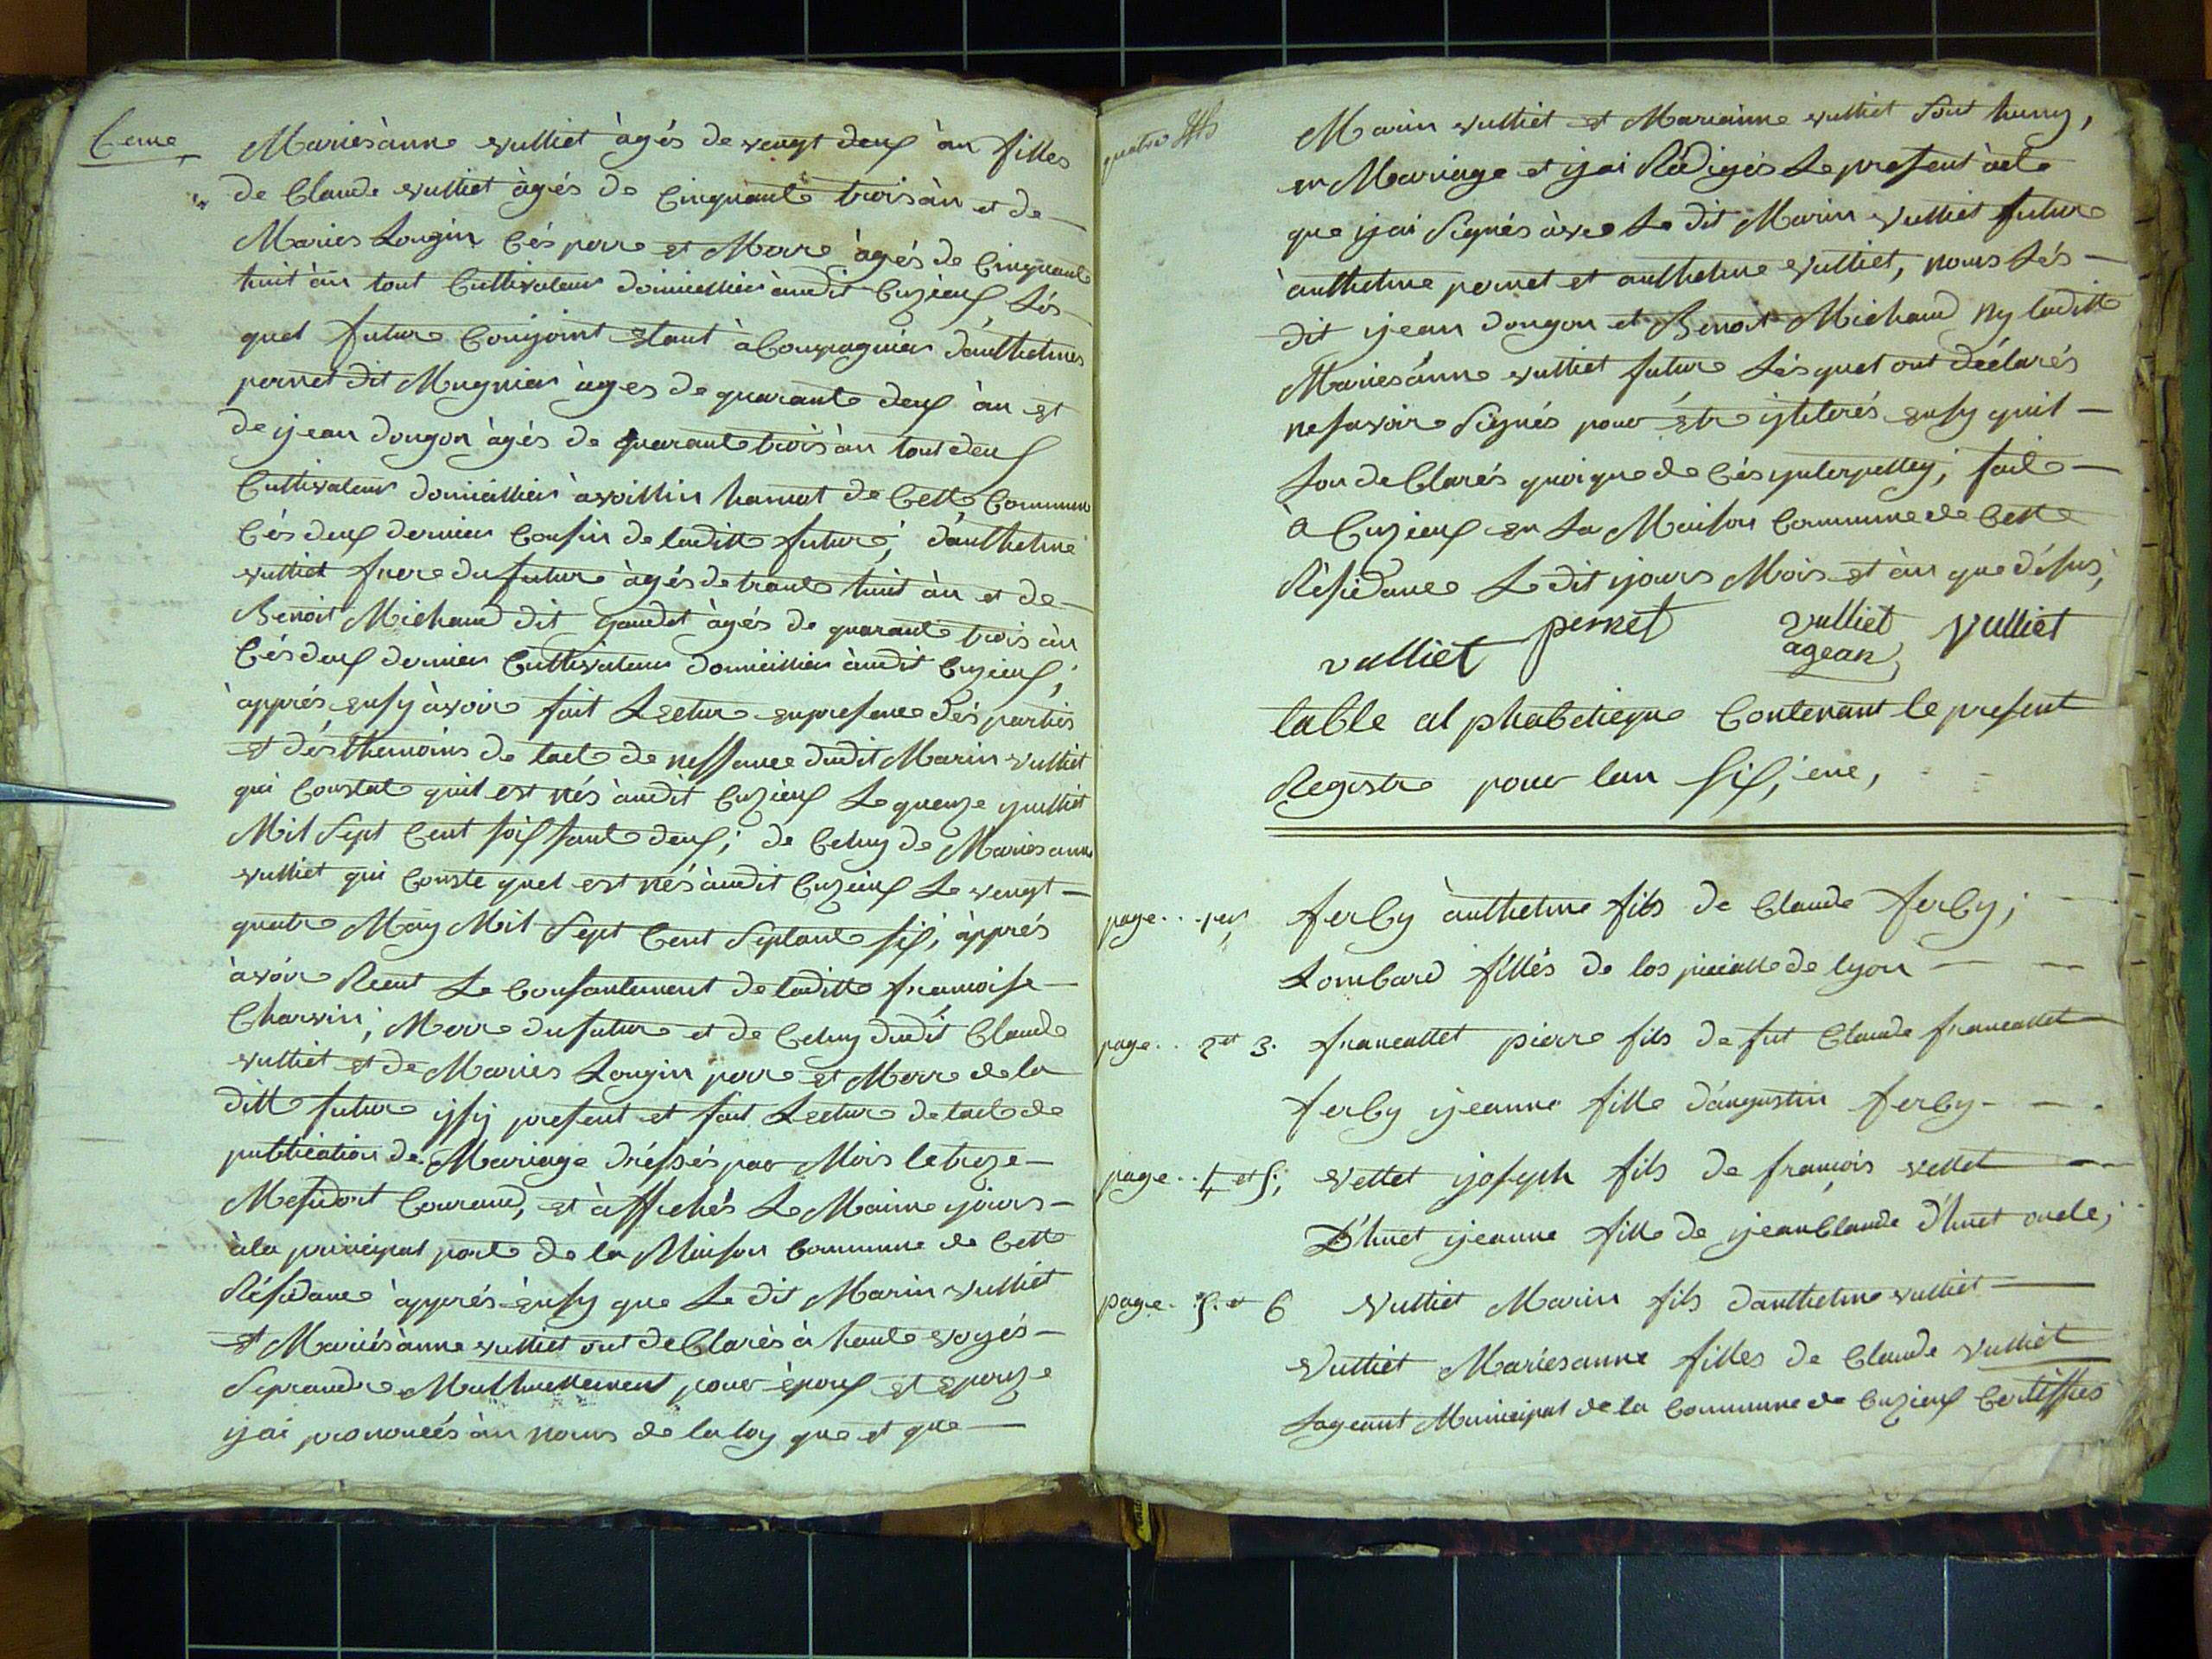 6eme
Mariesànne vulliet àgés de vengt deux àn filles
de Claude vulliet àgés de Cinquante trois àn et de
Maries Lougin Cés pere et Mere àgés de Cinquante
huit àn tout Cultivateur domicillier àudit Cuzieux, Lés
quel future Conjoint etant àCompagnier d'anthelmes
pernet dit Mugnier àges de quarante deux àn et
de ijean dougon àgés de quarante trois àn tout deux
Cultivateur domicillier àvoillin hamot de Cette Commune
Cés deux dernier Cousin de laditte future; d'anthelme
vulliet frere du future àgés de trante huit àn et de
Benoit Michaud dit gaudet àgés de quarante trois àn
Cés deux dernier Cultivateur domicillier àudit Cuzieux;
àpprés ensy àvoire fait Lectur enpresance dés partiés
et dés themoins de lacte de nessance dudit Marin vulliet
qui Constate quil est nés àudit Cuzieux Le quenze ijulliet
Mil Sept Cent soissante deux; de Celuy de Mariesanne
vulliet qui Conste quel est nés àudit Cuzieux Le vengt
quatre May Mil Sept Cent Septante six; àpprés
àvoir Recut Le Consantement de laditte francoise
Charvin; Mere du future et de Celuy dudit Claude
vulliet et de Maries Lougin pere et Mere de la
ditte future ysy present et fait Lectur de lacte de
publication de Mariage dréssés par Mois le treze
Mesidort Courand, et àffichés Le Maime ijours
àla principal porte de la Maison Commune de Cette
Résidance àpprés ensy que Le dit Marin vulliet
et Mariésànne vulliet ont deClarés à haute voyés
Seprandre Mulhuellement pour époux et epouze
ijai prononcés àu noms de la loy que et que
quatre
Marin vulliet et Marianne vulliet Sont huny,
en Mariage et ijai Rédigés Le present àcte
que ijai Signés àvec Le dit Marin vulliet future
ànthelme pernet et anthelme vulliet, nous Lés
dit ijean dougon et Benoit Michaud ny laditte
Mariesanne vulliet future Lésquel ont déclarés
ne savoire Signés pour etre ijleterés ensy quil
Lon deClarés quoique de Cés ynterpelley; faite
à Cuzieux en La Maison Commune de Cette
Résidance Le dit ijours Mois et àn que désus;
vulliet pernet vulliet agean vulliet
table al phabetieque Contenant le present
Registre pour lan six; ene,
page.. 1er ferley ànthelme fils de Claude ferley;
Lombard filles de los piciatte de lyon
page.. 2 et 3. francallet pierre fils de fut Claude francallet
ferley ijeanne fille d'augustin ferley
page.. 4 et 5; vettet ijoseph fils de françois vettet
D'huet ijeanne fille de ijeanClaude d'huet oncle;
page. 5. et 6 vulliet Marin fils danthelme vulliet
vulliet Mariesanne filles de Claude vulliet
Lageant Municipal de la Commune de Cuzieux Certiffies